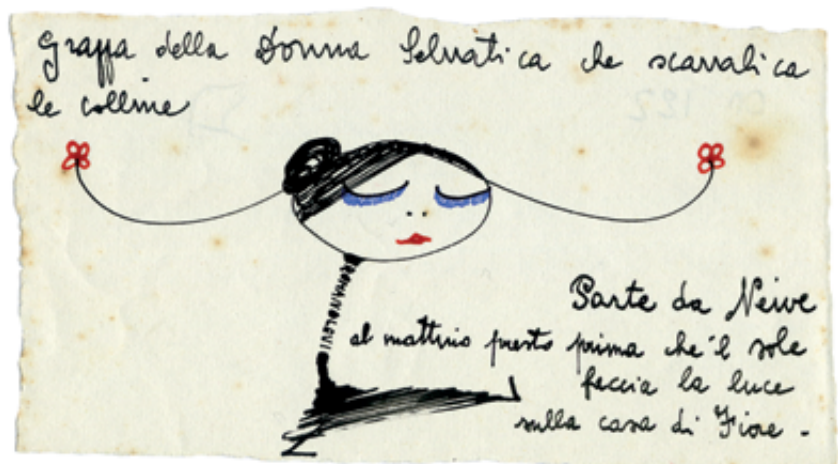 Grappa della Donna Selvatica che scavalica
le colline
ROMANOLEVI
Parte da Neive
al mattino presto prima che 'l sole
faccia la luce
sulla casa di Fiore -